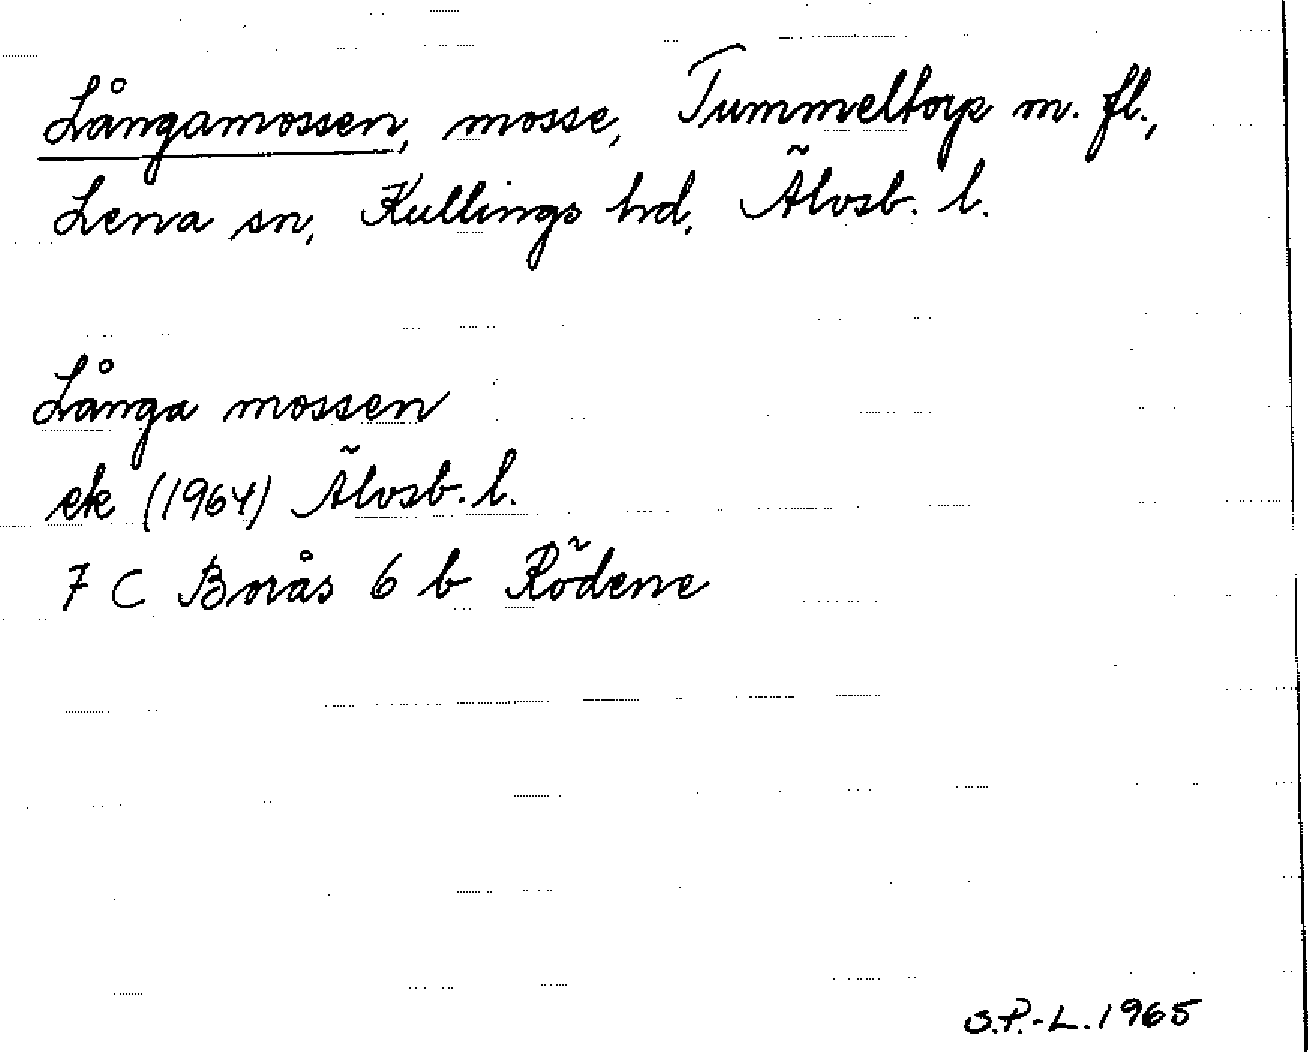 Långamossen, mosse, Tummeltorp m. fl.,
Lena sn, Kullings hd, Älvsb. l.
Långa mossen
ek (1964) Älvsb. l.
7 C Borås 6 b Rödene
S.P.-L. 1965